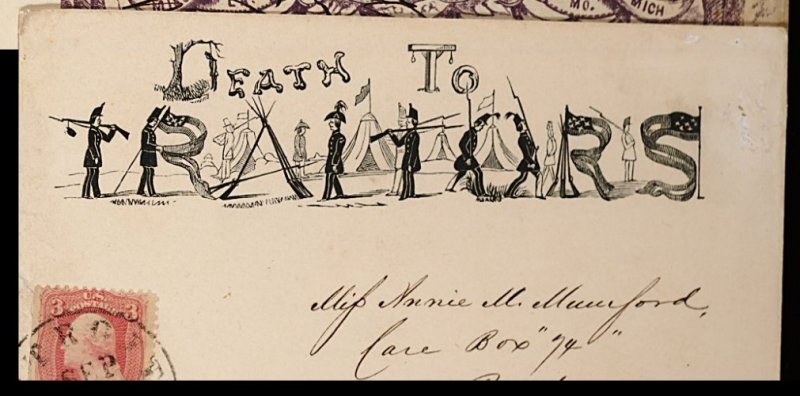 MO. MICH
DEATH TO
TRAITORS
3 U.S. POSTAGE 3
PROVI
SEP
Miss Annie M. Mumford,
Care Box "74"